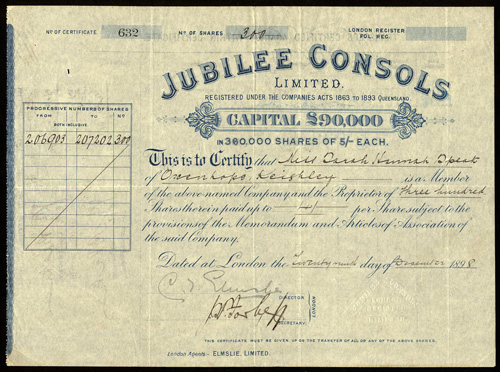 Nº OF CERTIFICATE 632 Nº OF SHARES 300 LONDON REGISTER
FOL. REG.
JUBILEE CONSOLS
LIMITED.
REGISTERED UNDER THE COMPANIES ACTS 1863 TO 1893 QUEENSLAND.
CAPITAL £90,000
IN 360,000 SHARES OF 5/- EACH.
PROGRESSIVE NUMBERS OF SHARES
BOTH INCLUSIVE Nº
206903 207202 300
This is to Certify that Miss Sarah Hannah Speat
of Oxenhope Keighley is a Member
of the above named Company and the Proprietor of Three hundred
Shares therein paid up to per Share subject to the
provisions of the Memorandum and Articles of Association of
the said Company.
Dated at London the Twenty ninth day of December 1898
DIRECTOR
LONDON
SECRETARY
THIS CERTIFICATE MUST BE GIVEN UP ON THE TRANSFER OF ALL OR ANY OF THE ABOVE SHARES.
London Agents:- ELMSLIE, LIMITED.